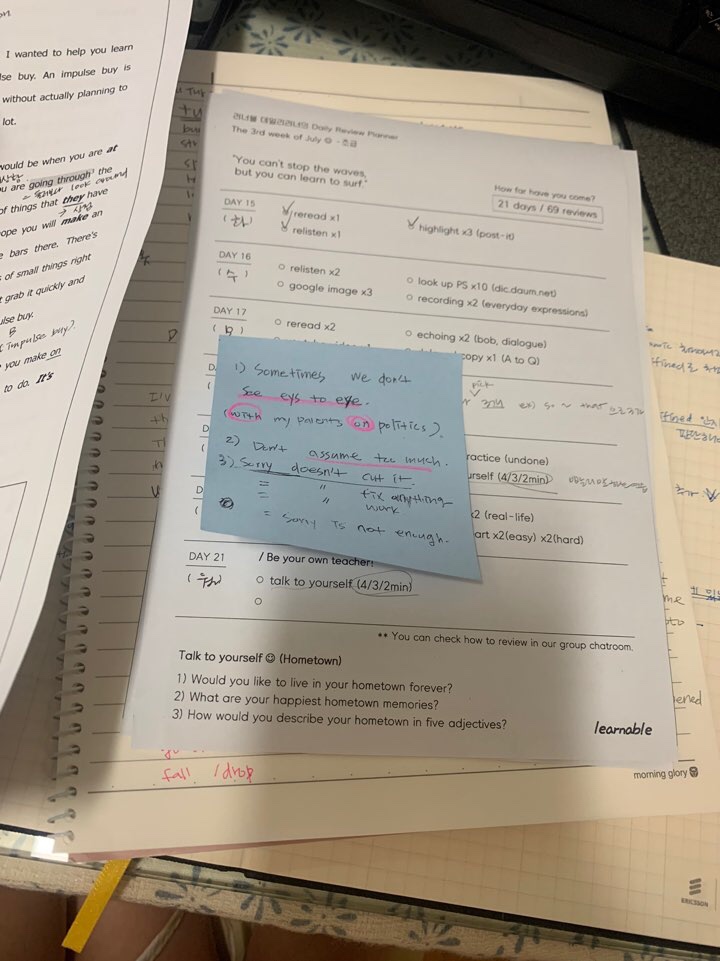 I wanted to help you learn
lse buy. An impulse buy is
without actually planning to
lot.
would be when you are at
u are going through the
look around
of things that they have
ope you will make an
e bars there. There's
of small things right
t grab it quickly and
ulse buy.
B
impulse buy).
you make on
to do. It's
러너블 데일리러너의 Daily Review Planner
The 3rd week of July ☺ - 초급
"You can't stop the waves,
but you can learn to surf."
How far have you come?
21 days / 69 reviews
DAY 15
(화)
reread x1
relisten x1
highlight x3 (post-it)
DAY 16
(수)
relisten x2
google image x3
look up PS x10 (dic.daum.net)
recording x2 (everyday expressions)
DAY 17
reread x2
echoing x2 (bob, dialogue)
copy x1 (A to Q)
pick
ex) so ~ that
1) Sometimes we don't
see eys to eye.
(with my parents on politics).
2) Don't assume too much.
3) Sorry doesn't cut it.
= " fix anything
= " work
= Sorry is not enough.
ractice (undone)
urself (4/3/2min)
x2 (real-life)
art x2(easy) x2(hard)
DAY 21
/ Be your own teacher!
talk to yourself (4/3/2min)
** You can check how to review in our group chatroom.
Talk to yourself ☺ (Hometown)
1) Would you like to live in your hometown forever?
2) What are your happiest hometown memories?
3) How would you describe your hometown in five adjectives?
learnable
fall / drop
morning glory
ERICSSON